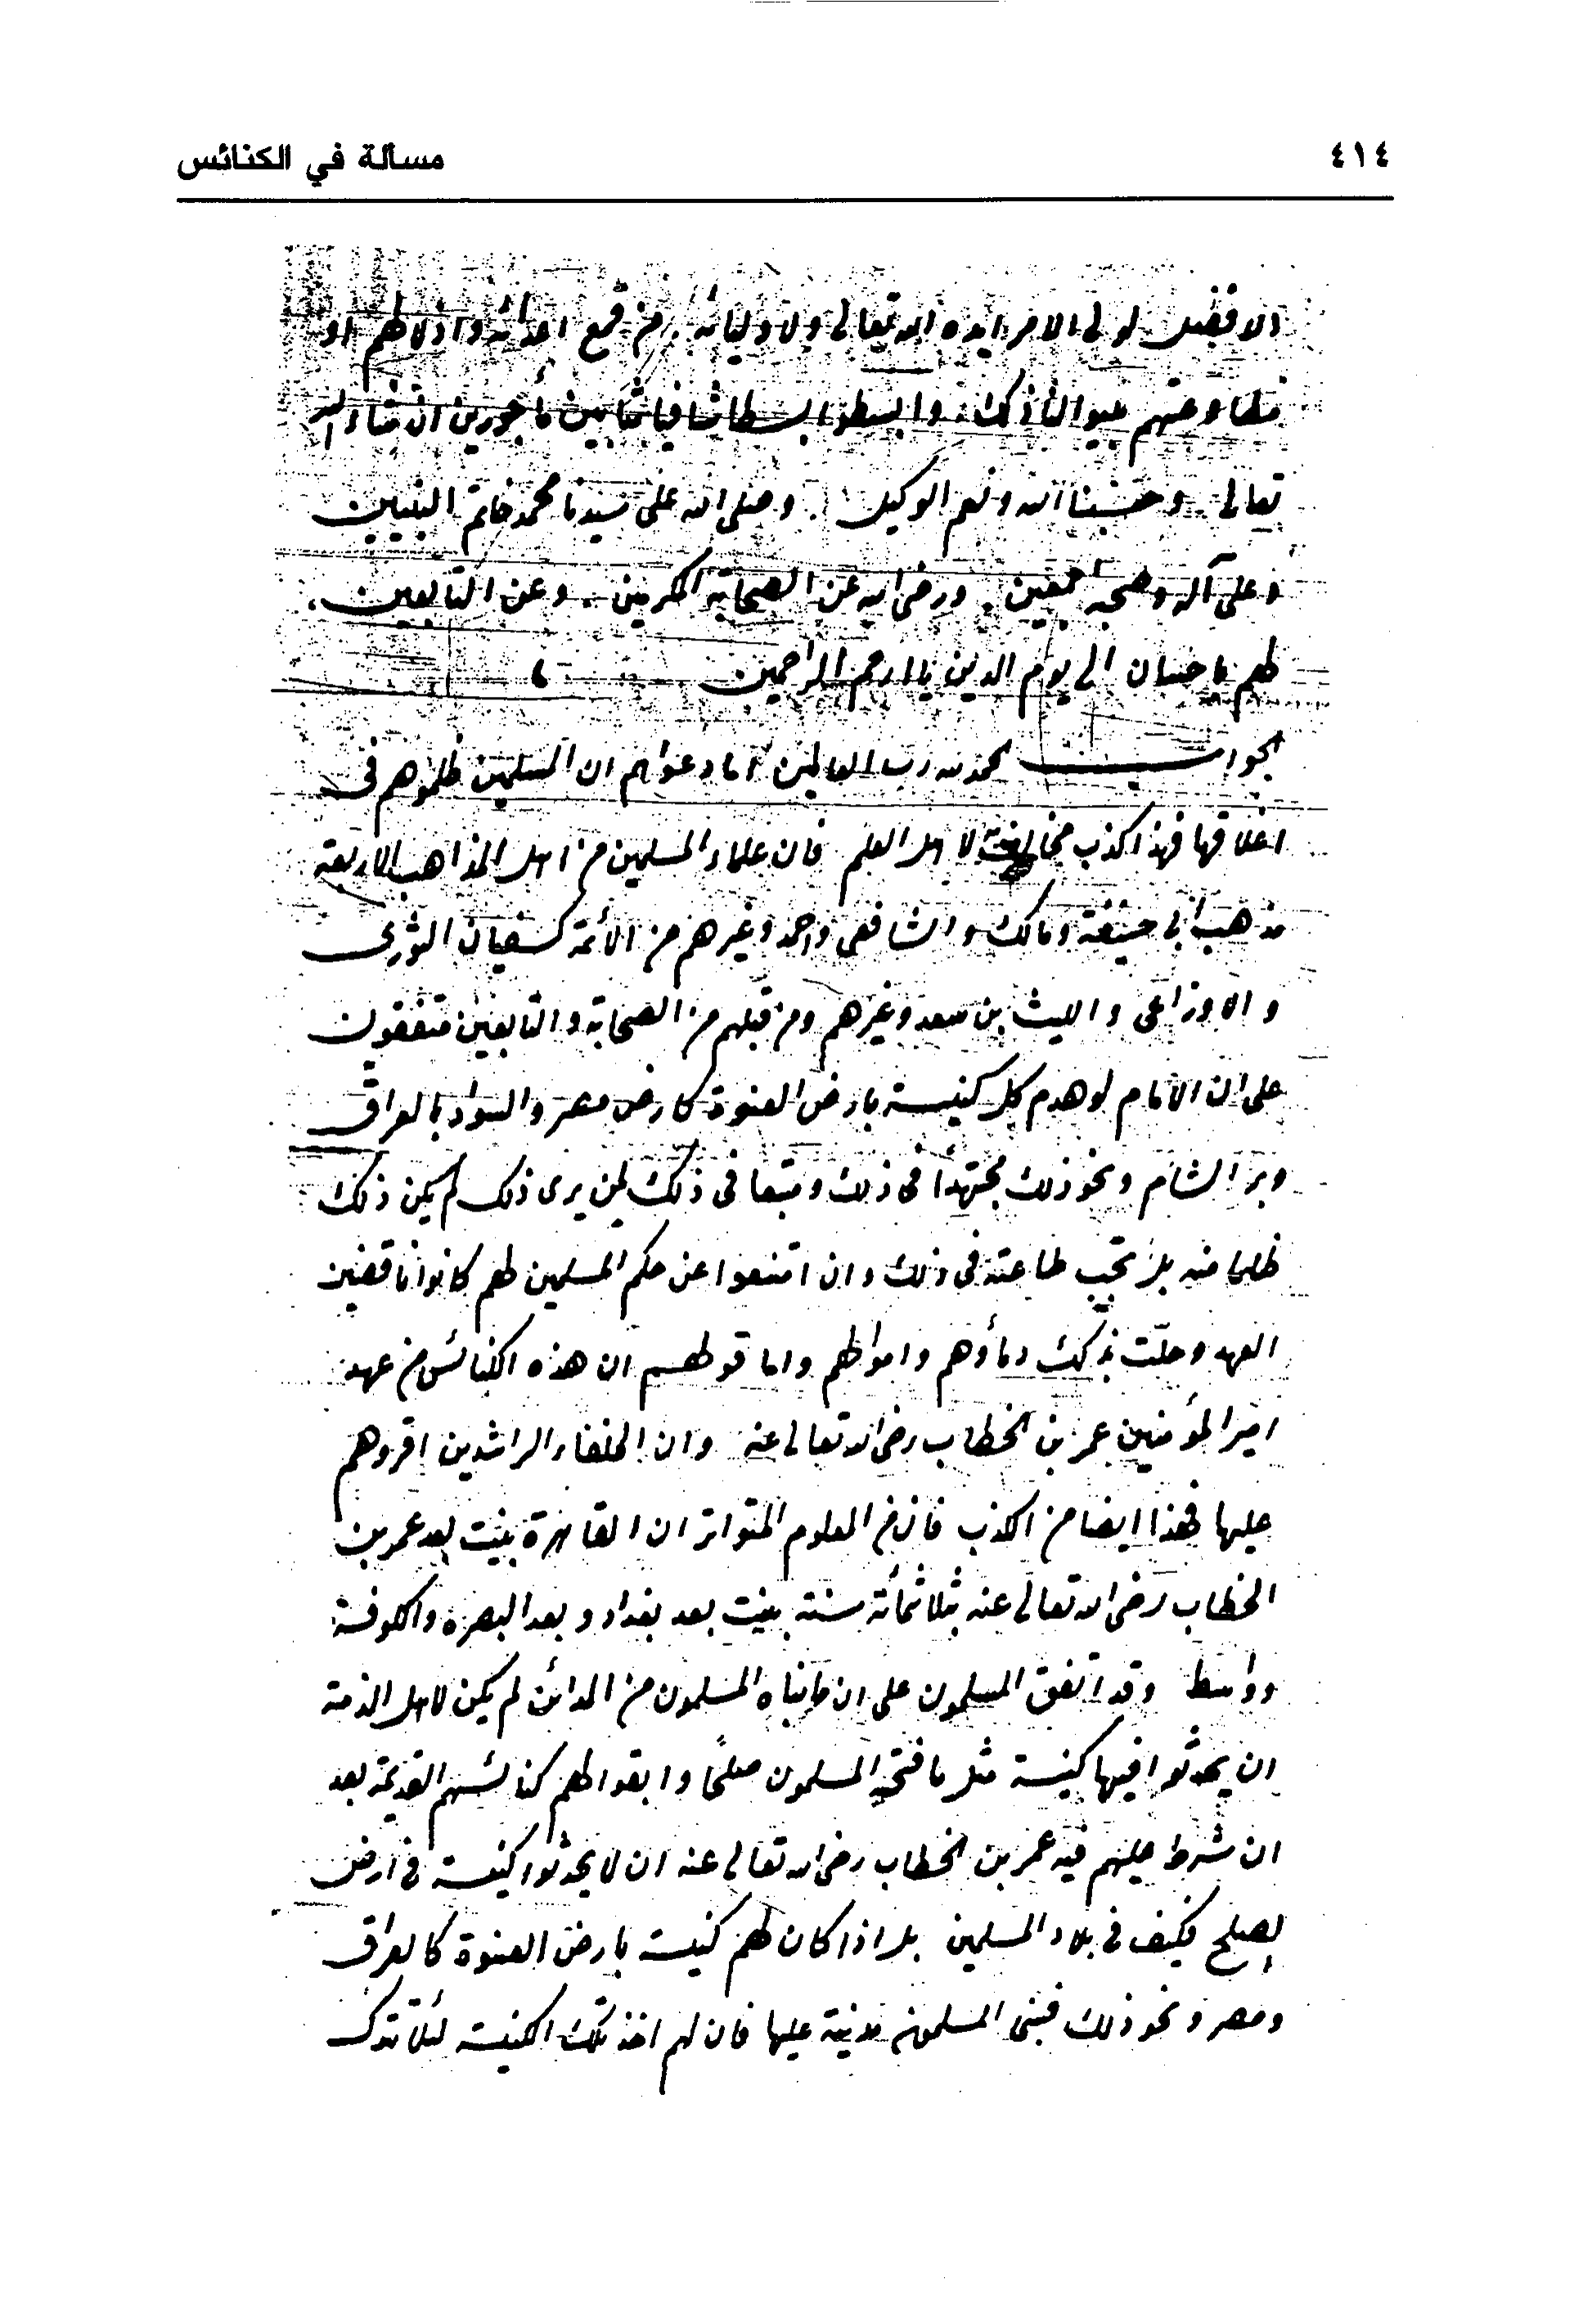 ٤١٤
مسألة في الكنائس
الافضل لولى الامر ايده الله تعالى ولاوليائه من قمع اعدائه واذلالهم او
مطاوعتهم بينوا لنا ذلك وابسطوا بسطا شافيا مثابين مأجورين ان شاء الله
تعالى وحسبنا الله ونعم الوكيل وصلى الله على سيدنا محمد خاتم النبيين
وعلى آله وصحبه اجمعين ورضى الله عن الصحابة المكرمين وعن التابعين
لهم باحسان الى يوم الدين يا ارحم الراحمين
الجواب الحمد لله رب العالمين اما دعواهم ان المسلمين ظلموهم فى
اغلاقها فهذا كذب مخالف لاهل العلم فان علماء المسلمين من اهل المذاهب الاربعة
مذهب ابى حنيفة ومالك والشافعى واحمد وغيرهم من الائمة كسفيان الثورى
والاوزاعى والليث بن سعد وغيرهم ومن قبلهم من الصحابة والتابعين متفقون
على ان الامام لو هدم كل كنيسة بارض العنوة كارض مصر والسواد بالعراق
وبر الشام ونحو ذلك مجتهدًا فى ذلك ومتبعا فى ذلك لمن يرى ذلك لم يكن ذلك
ظلما منه بل تجب طاعته فى ذلك وان امتنعوا عن حكم المسلمين لهم كانوا ناقضين
العهد وحلّت بذلك دماؤهم واموالهم واما قولهم ان هذه الكنائس من عهد
امير المؤمنين عمر بن الخطاب رضى الله تعالى عنه وان الخلفاء الراشدين اقروهم
عليها فهذا ايضا من الكذب فان من المعلوم المتواتر ان القاهرة بنيت بعد عمر بن
الخطاب رضى الله تعالى عنه بثلاثمائة سنة بنيت بعد بغداد وبعد البصره والكوفة
وواسط وقد اتفق المسلمون على ان ما بناه المسلمون من المدائن لم يكن لاهل الذمة
ان يحدثوا فيها كنيسة مثل ما فتحه المسلمون صلحًا وابقوا لهم كنائسهم القديمة بعد
ان شرط عليهم فيه عمر بن الخطاب رضى الله تعالى عنه ان لا يحدثوا كنيسة فى ارض
الصلح فكيف فى بلاد المسلمين بل اذا كان لهم كنيسة بارض العنوة كالعراق
ومصر ونحو ذلك فبنى المسلمون مدينة عليها فان لهم اخذ تلك الكنيسة لئلا تترك